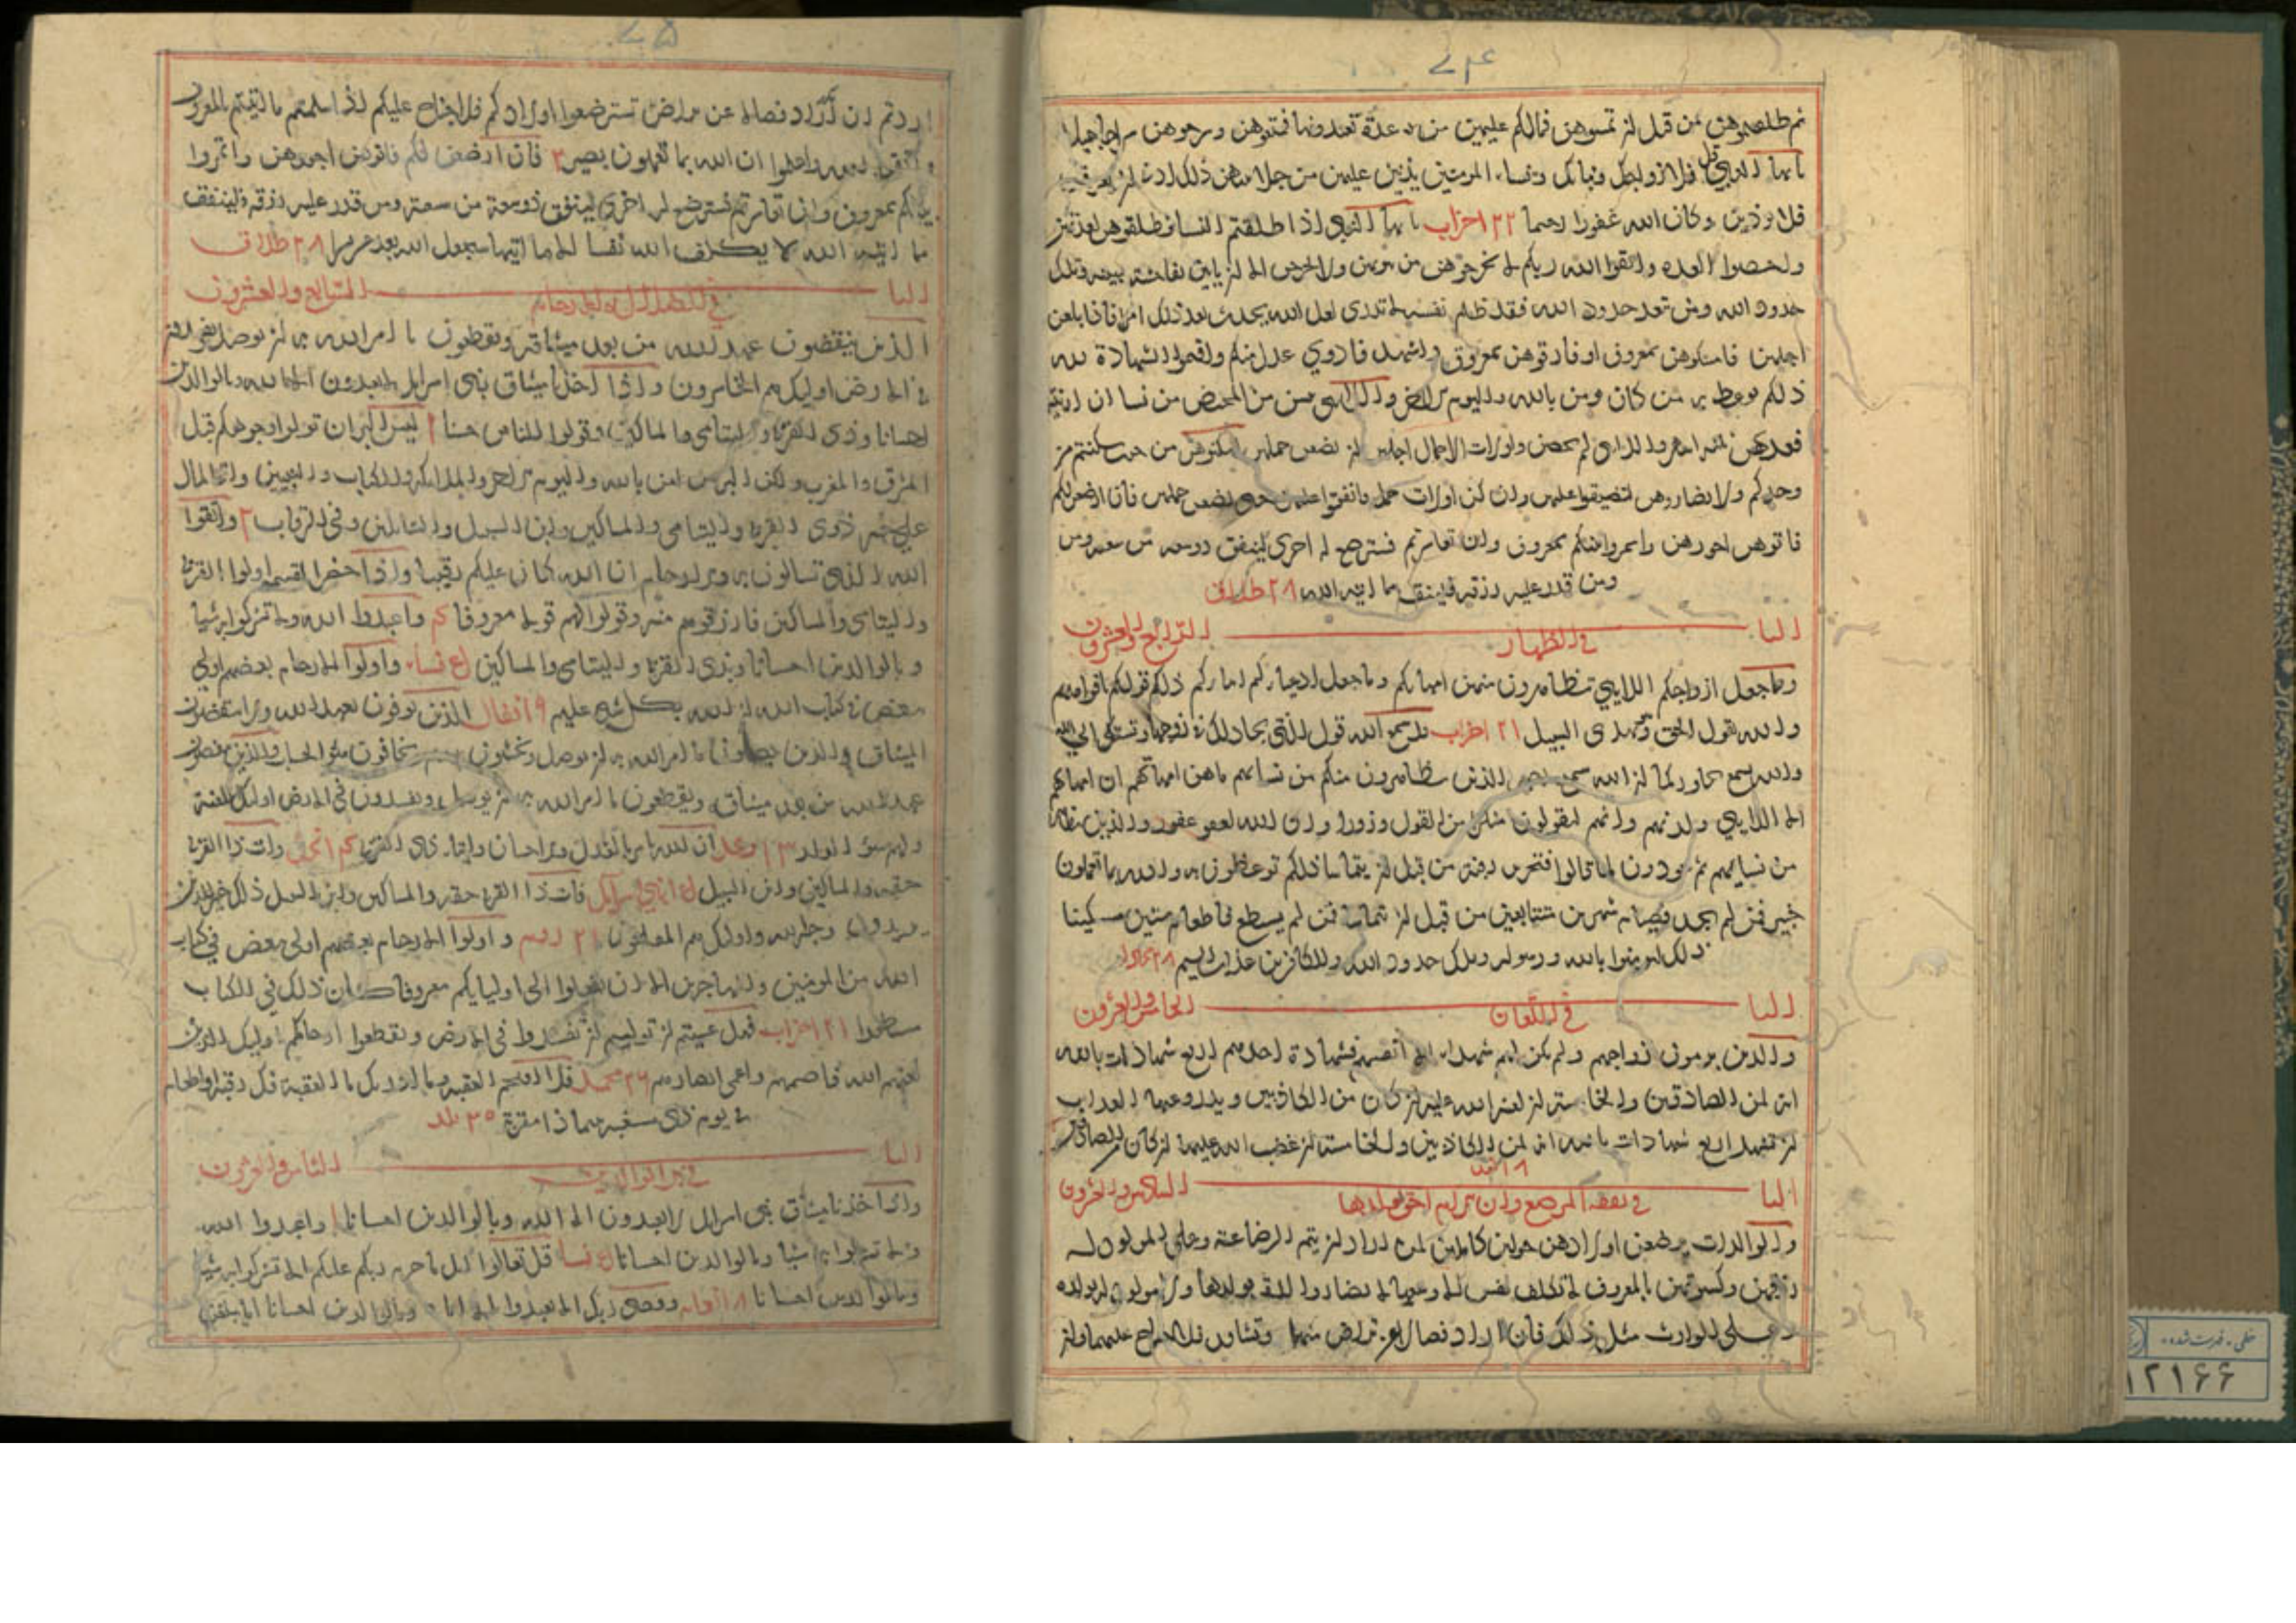 ٧٤
ثم طلقتموهن من قبل ان تمسوهن فمالكم عليهن من عدة تعتدونها فمتعوهن وسرحوهن سراحا جميلا
يا ايها النبي قل لازواجك وبناتك ونساء المومنين يدنين عليهن من جلابيبهن ذلك ادنى ان يعرفن
فلا يوذين وكان الله غفورا رحيما ٢٢ احزاب يا ايها النبي اذا طلقتم النسا فطلقوهن لعدتهن
واحصوا العدة واتقوا الله ربكم لا تخرجوهن من بيوتهن ولا يخرجن الا ان ياتين بفاحشة مبينة وتلك
حدود الله ومن تعد حدود الله فقد ظلم نفسه لا تدري لعل الله يحدث بعد ذلك امرا فاذا بلغن
اجلهن فامسكوهن بمعروف او فارقوهن بمعروف واشهدوا ذوي عدل منكم واقيموا الشهادة لله
ذلكم يوعظ به من كان يومن بالله واليوم الاخر واللائي يئسن من المحيض من نسا ان ارتبتم
فعدتهن ثلثة اشهر واللائي لم يحضن واولات الاحمال اجلهن ان يضعن حملهن اسكنوهن من حيث سكنتم من
وجدكم ولا تضاروهن لتضيقوا عليهن وان كن اولات حمل فانفقوا عليهن حتى يضعن حملهن فان ارضعن لكم
فاتوهن اجورهن وائتمروا بينكم بمعروف وان تعاسرتم فسترضع له اخرى لينفق ذو سعة من سعته ومن
ومن قدر عليه رزقه فلينفق مما اتيه الله ٢٨ طلاق
البا في الظهار الرابع والعشرون
وما جعل ازواجكم اللايي تظاهرون منهن امهاتكم وما جعل ادعياءكم ابناءكم ذلكم قولكم بافواهكم
والله يقول الحق وهو يهدى السبيل ٢١ احزاب قد سمع الله قول التي تجادلك في زوجها وتشتكي الى الله
والله يسمع تحاوركما ان الله سميع بصير الذين يظاهرون منكم من نسائهم ما هن امهاتهم ان امهاتهم
الا اللايي ولدنهم وانهم ليقولون منكرا من القول وزورا وان الله لعفو غفور والذين يظاهرون
من نسايهم ثم يعودون لما قالوا فتحرير رقبة من قبل ان يتماسا ذلكم توعظون به والله بما تعملون
خبير فمن لم يجد فصيام شهرين متتابعين من قبل ان يتماسا فمن لم يستطع فاطعام ستين مسكينا
ذلك لتومنوا بالله ورسوله وتلك حدود الله وللكافرين عذاب اليم ٢٨ مجادلة
البا في اللعان الخامس والعشرون
والذين يرمون ازواجهم ولم يكن لهم شهداء الا انفسهم فشهادة احدهم اربع شهادات بالله
انه لمن الصادقين والخامسة ان لعنة الله عليه ان كان من الكاذبين ويدروا عنها العذاب
ان تشهد اربع شهادات بالله انه لمن الكاذبين والخامسة ان غضب الله عليها ان كان من الصادقين
١٨ نور
البا في نفقة المرضع السادس والعشرون
والوالدات يرضعن اولادهن حولين كاملين لمن اراد ان يتم الرضاعة وعلى المولود له
رزقهن وكسوتهن بالمعروف لا تكلف نفس الا وسعها لا تضار والدة بولدها ولا مولود له بولده
وعلى الوارث مثل ذلك فان ارادا فصالا عن تراض منهما وتشاور فلا جناح عليهما وان
٧٥
اردتم ان عن تراض تسترضعوا اولادكم فلا جناح عليكم اذا سلمتم ما اتيتم بالمعروف
واتقوا الله واعلموا ان الله بما تعملون بصير ٢ فان ارضعن لكم فاتوهن اجورهن وائتمروا
بينكم بمعروف وان تعاسرتم فسترضع له اخرى لينفق ذو سعة من سعته ومن قدر عليه رزقه فلينفق
مما اتيه الله لا يكلف الله نفسا الا ما اتيها سيجعل الله بعد عسر يسرا ٢٨ طلاق
البا السابع والعشرون
الذين ينقضون عهد الله من بعد ميثاقه ويقطعون ما امر الله به ان يوصل ويفسدون
في الارض اوليك هم الخاسرون واذا اخذنا ميثاق بني اسرايل لا تعبدون الا الله وبالوالدين
احسانا وذى القربى واليتامى والمساكين وقولوا للناس حسنا ١ ليس البر ان تولوا وجوهكم قبل
المشرق والمغرب ولكن البر من امن بالله واليوم الاخر والملائكة والكتاب والنبيين واتى المال
على حبه ذوى القربى واليتامى والمساكين وابن السبيل والسائلين وفي الرقاب ٢ واتقوا
الله الذي تسالون به والارحام ان الله كان عليكم رقيبا واذا حضر القسمة اولوا القربى
واليتامى والمساكين فارزقوهم منه وقولوا لهم قولا معروفا واعبدوا الله ولا تشركوا به شيا
وبالوالدين احسانا وبذى القربى واليتامى والمساكين نساء واولوا الارحام بعضهم اولى
ببعض في كتاب الله ان الله بكل شي عليم ٩ انفال الذين يوفون بعهد الله ولا ينقضون
الميثاق والذين يصلون ما امر الله به ان يوصل ويخشون ربهم ويخافون سوء الحساب والذين ينقضون
عهد الله من بعد ميثاقه ويقطعون ما امر الله به ان يوصل ويفسدون في الارض اوليك لهم اللعنة
ولهم سوء الدار ١٣ رعد ان الله يامر بالعدل والاحسان وايتاء ذى القربى نحل وات ذا القربى
حقه والمساكين وابن السبيل بني اسرايل فات ذا القربى حقه والمساكين وابن السبيل ذلك خير للذين
يريدون وجه الله واوليك هم المفلحون ٢١ روم واولوا الارحام بعضهم اولى ببعض في كتاب
الله من المومنين والمهاجرين الا ان تفعلوا الى اوليايكم معروفا كان ذلك في الكتاب
مسطورا ٢١ احزاب فهل عسيتم ان توليتم ان تفسدوا في الارض وتقطعوا ارحامكم اوليك الذين
لعنهم الله فاصمهم واعمى ابصارهم ٢٦ محمد فلا اقتحم العقبة وما ادريك ما العقبة فك رقبة او اطعام
في يوم ذى مسغبة يتيما ذا مقربة ٣٥ بلد
البا في بر الوالدين الثامن والعشرون
واذ اخذنا ميثاق بني اسرايل لا تعبدون الا الله وبالوالدين احسانا ١ واعبدوا الله
ولا تشركوا به شيا وبالوالدين احسانا نسا قل تعالوا اتل ما حرم ربكم عليكم الا تشركوا به شيا
وبالوالدين احسانا ٨ انعام وقضى ربك الا تعبدوا الا اياه وبالوالدين احسانا اما يبلغن
خطى - فهرست شده
١٢١٦٦